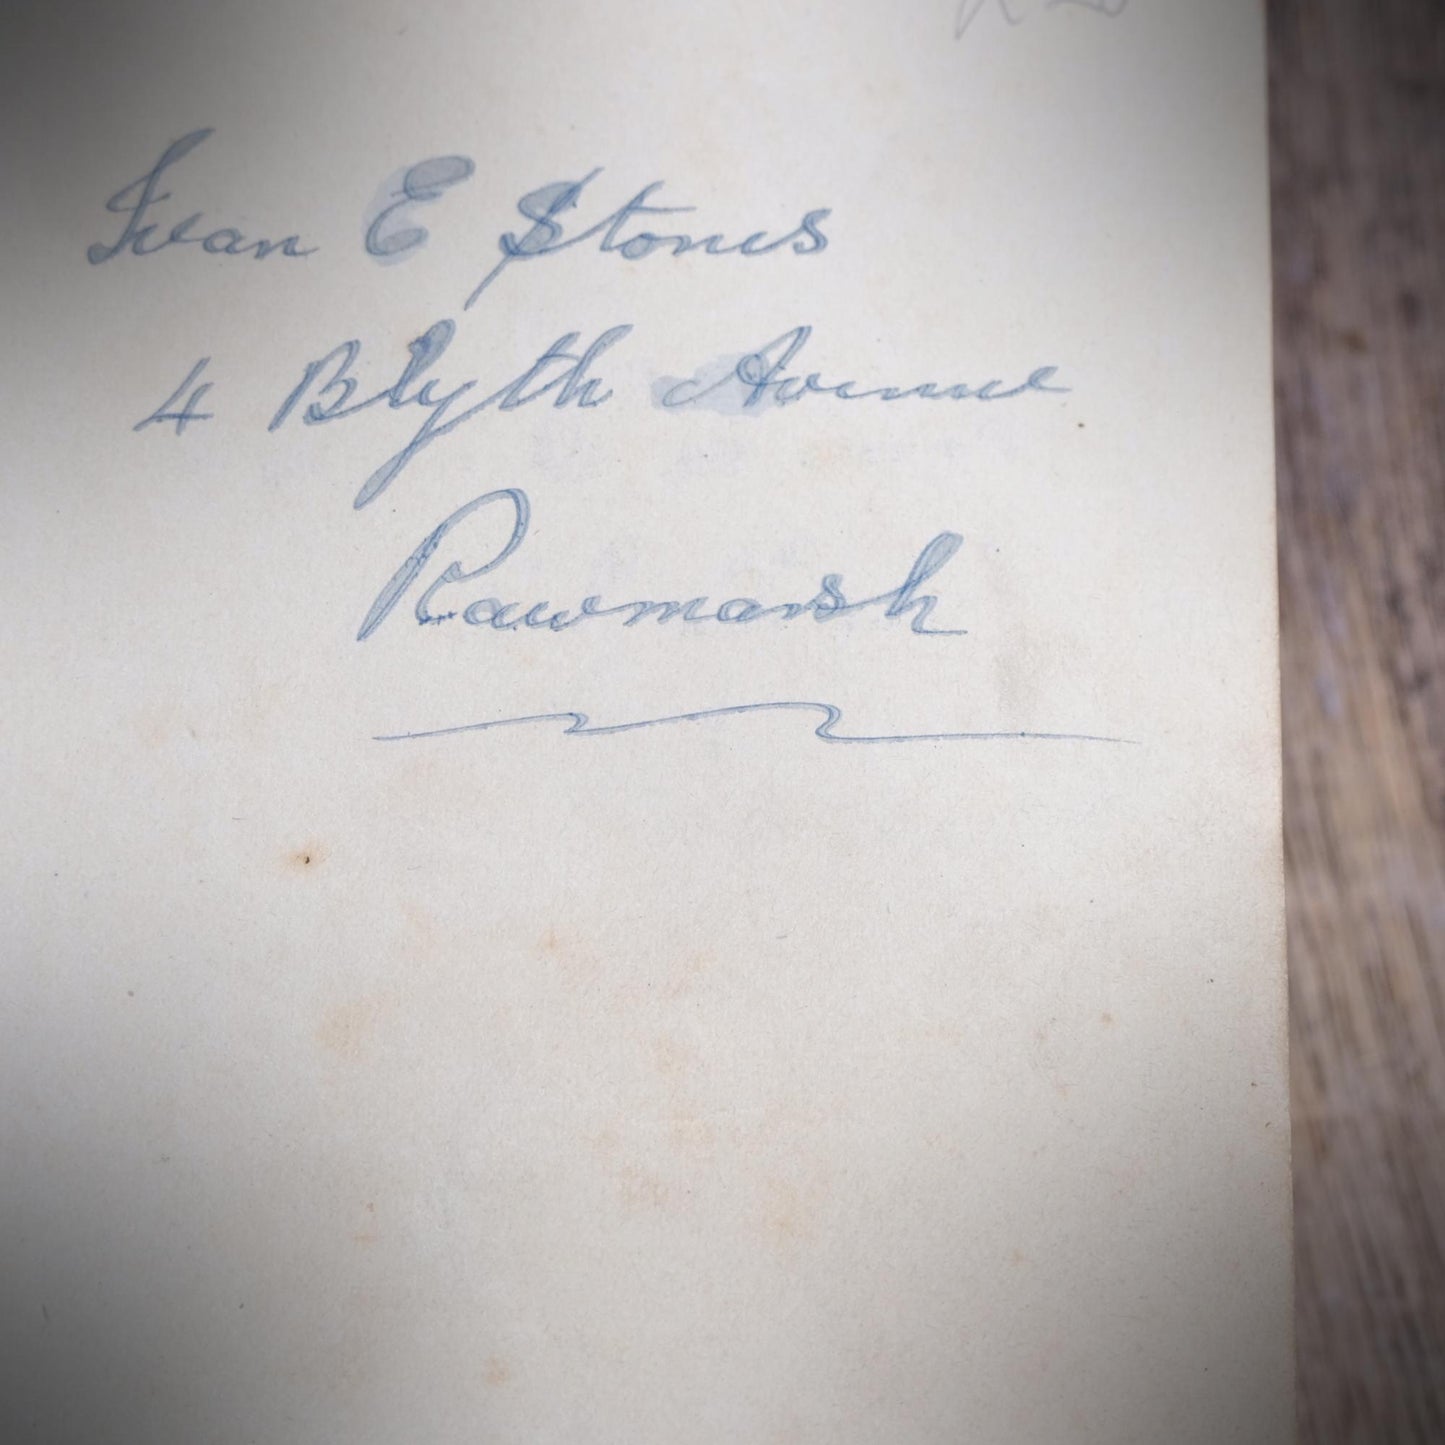 Ivan E Stones
4 Blyth Avenue
Rawmarsh